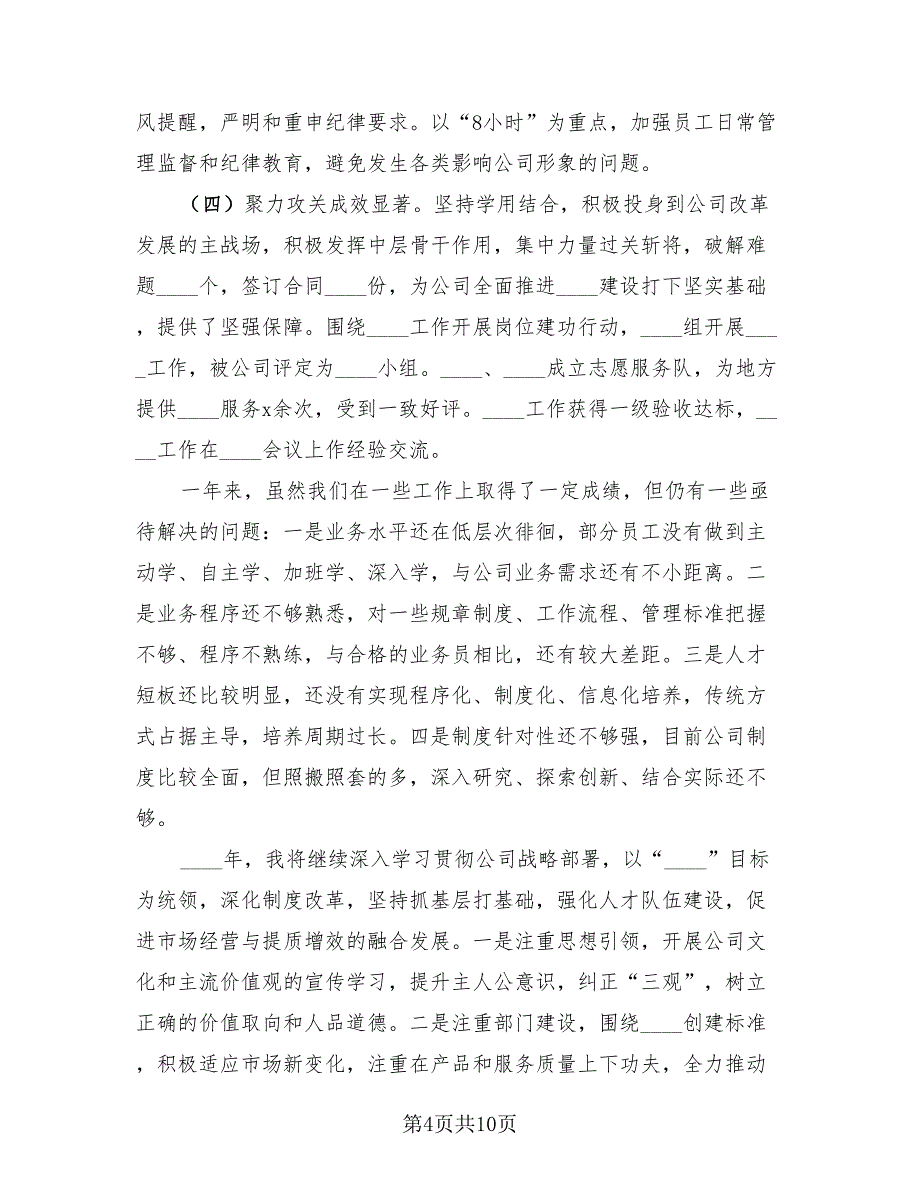 风提醒，严明和重申纪律要求。以“8小时”为重点，加强员工日常管
理监督和纪律教育，避免发生各类影响公司形象的问题。
（四）聚力攻关成效显著。坚持学用结合，积极投身到公司改革
发展的主战场，积极发挥中层骨干作用，集中力量过关斩将，破解难
题____个，签订合同____份，为公司全面推进____建设打下坚实基础
，提供了坚强保障。围绕____工作开展岗位建功行动，____组开展___
_工作，被公司评定为____小组。____、____成立志愿服务队，为地方
提供____服务x余次，受到一致好评。____工作获得一级验收达标，__
__工作在____会议上作经验交流。
一年来，虽然我们在一些工作上取得了一定成绩，但仍有一些亟
待解决的问题：一是业务水平还在低层次徘徊，部分员工没有做到主
动学、自主学、加班学、深入学，与公司业务需求还有不小距离。二
是业务程序还不够熟悉，对一些规章制度、工作流程、管理标准把握
不够、程序不熟练，与合格的业务员相比，还有较大差距。三是人才
短板还比较明显，还没有实现程序化、制度化、信息化培养，传统方
式占据主导，培养周期过长。四是制度针对性还不够强，目前公司制
度比较全面，但照搬照套的多，深入研究、探索创新、结合实际还不
够。
____年，我将继续深入学习贯彻公司战略部署，以“____”目标
为统领，深化制度改革，坚持抓基层打基础，强化人才队伍建设，促
进市场经营与提质增效的融合发展。一是注重思想引领，开展公司文
化和主流价值观的宣传学习，提升主人公意识，纠正“三观”，树立
正确的价值取向和人品道德。二是注重部门建设，围绕____创建标准
，积极适应市场新变化，注重在产品和服务质量上下功夫，全力推动
第4页共10页